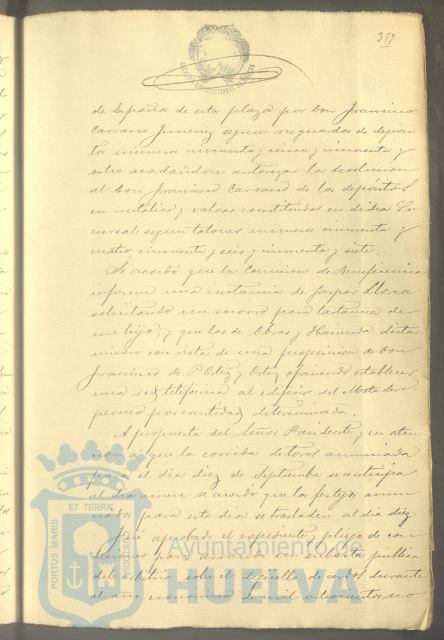 359
de España de esta plaza por Don Francisco
Carrasco Jimenez segun resguardos de deposi
tos números cincuenta y cinco y cincuenta y
ocho acordándose autorizar la devolucion
al Don Francisco Carrasco de los depósitos
en metálico y valores constituidos en dicha Su
cursal segun talones números cincuenta y
cuatro, cincuenta y seis y cincuenta y siete.
Se acordó que la Comision de Beneficencia
informe una instancia de Gaspar Llorca
solicitando un socorro para lactancia de
un hijo; y que las de Obras y Hacienda dicta
minen con vista de una proposicion de Don
Francisco de P. Ortiz y Ortiz ofreciendo establecer
una red telefónica al edificio del Matadero
por cantidad determinada.
A propuesta del Señor Presidente y en aten
cion a que la corrida de toros anunciada
para el dia diez de Septiembre se anticipa
al dia nueve se acordó que los festejos anun
ciados para este dia se trasladen al dia diez
Fué aprobado el expediente y pliego de con
diciones para la subasta pública
del arbitrio sobre el degüello de cerdos durante
el año economico de mil ochocientos no
PORTUS MARIS
ET TERRAE
CUSTODIA
Ayuntamiento de
HUELVA